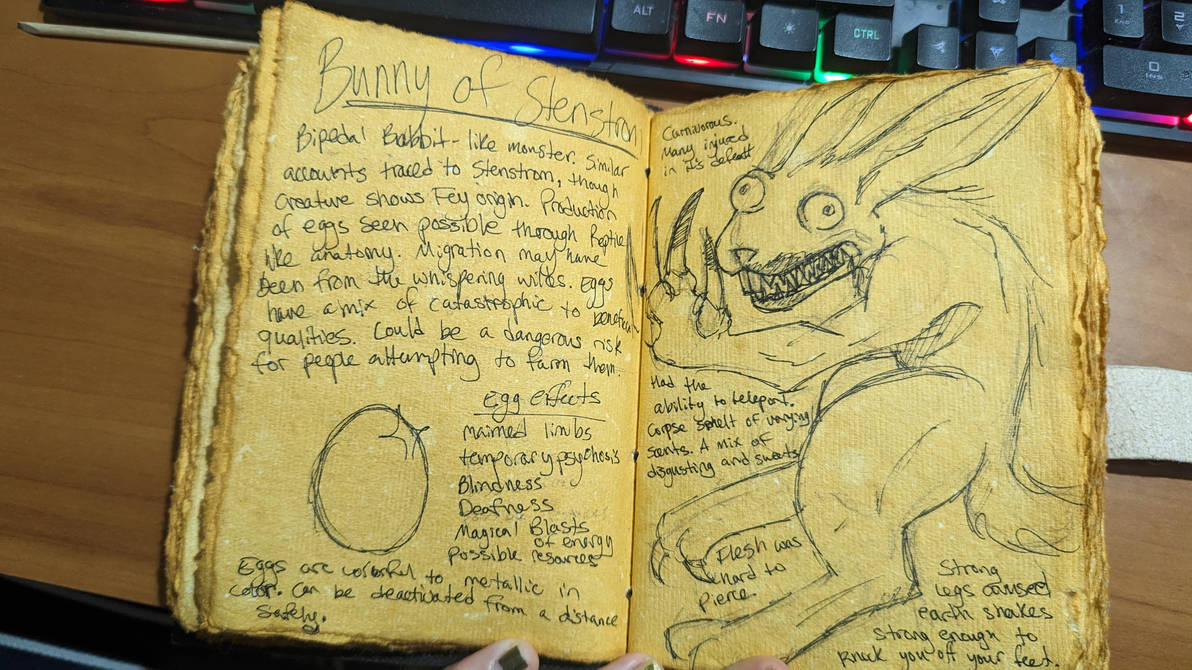 Bunny of Stenstrom
Bipedal Rabbit-like monster. Similar
accounts traced to Stenstrom, though
creature shows Fey origin. Production
of eggs seen possible through Reptile
like anatomy. Migration may have
been from the whispering wilds. Eggs
have a mix of catastrophic to benefical
qualities. Could be a dangerous risk
for people attempting to farm them.
egg effects
maimed limbs
temporary psychosis
Blindness
Deafness
Magical Blasts
of energy
Possible resources
Eggs are colorful to metallic in
color. Can be deactivated from a distance
safely.
Carnivorous.
Many injured
in it's defeat
Had the
ability to teleport.
Corpse smelt of varying
scents. A mix of
disgusting and sweets
Flesh was
hard to
pierce.
Strong
Legs caused
earth shakes
strong enough to
knock you off your feet.
ALT
FN
CTRL
1
END
2
0
INS